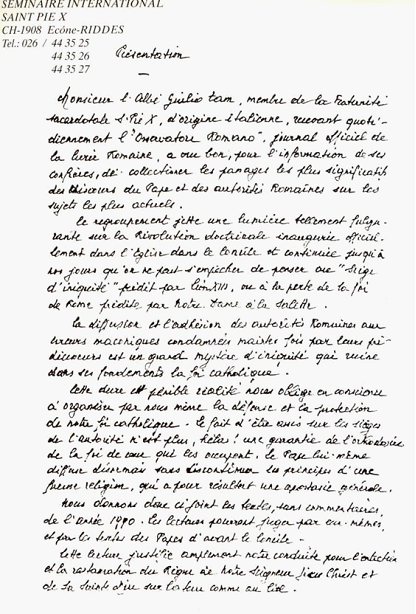 SEMINAIRE INTERNATIONAL
SAINT PIE X
CH-1908 Ecône-RIDDES
Tel.: 026 / 44 35 25
44 35 26
44 35 27
Présentation
Monsieur l'Abbé Giulio Tam, membre de la Fraternité
sacerdotale St Pie X, d'origine italienne, recevant quoti-
diennement l'"Osservatore Romano", journal officiel de
la Curie Romaine, a cru bon, pour l'information de ses
confrères, de collectionner les passages les plus significatifs
des discours du Pape et des autorités Romaines sur les
sujets les plus actuels.
Ce regroupement jette une lumière tellement fulgu-
rante sur la Révolution doctrinale inaugurée officiel-
lement dans l'Eglise dans le Concile et continuée jusqu'à
nos jours qu'on ne peut s'empêcher de penser au "Siège
d'iniquité" prédit par Léon XIII, ou à la perte de la foi
de Rome prédite par Notre Dame à la Salette.
La diffusion et l'adhésion des autorités Romaines aux
erreurs maçonniques condamnées maintes fois par leurs pré-
décesseurs est un grand mystère d'iniquité qui ruine
dans ses fondements la foi catholique.
Cette dure et pénible réalité nous oblige en conscience
à organiser par nous même la défense et la protection
de notre foi catholique. Le fait d'être assis sur les sièges
de l'autorité n'est plus, hélas! une garantie de l'orthodoxie
de la foi de ceux qui les occupent. Le Pape lui-même
diffuse désormais sans discontinuer les principes d'une
fausse religion, qui a pour résultat une apostasie générale.
Nous donnons donc ci joint les textes, sans commentaires,
de l'année 1990. Les lecteurs pourront juger par eux-mêmes,
et par les textes des Papes d'avant le Concile.
Cette lecture justifie amplement notre conduite pour l'entretien
et la restauration du Règne de Notre Seigneur Jésus Christ et
de sa Sainte Mère sur la terre comme au Ciel.